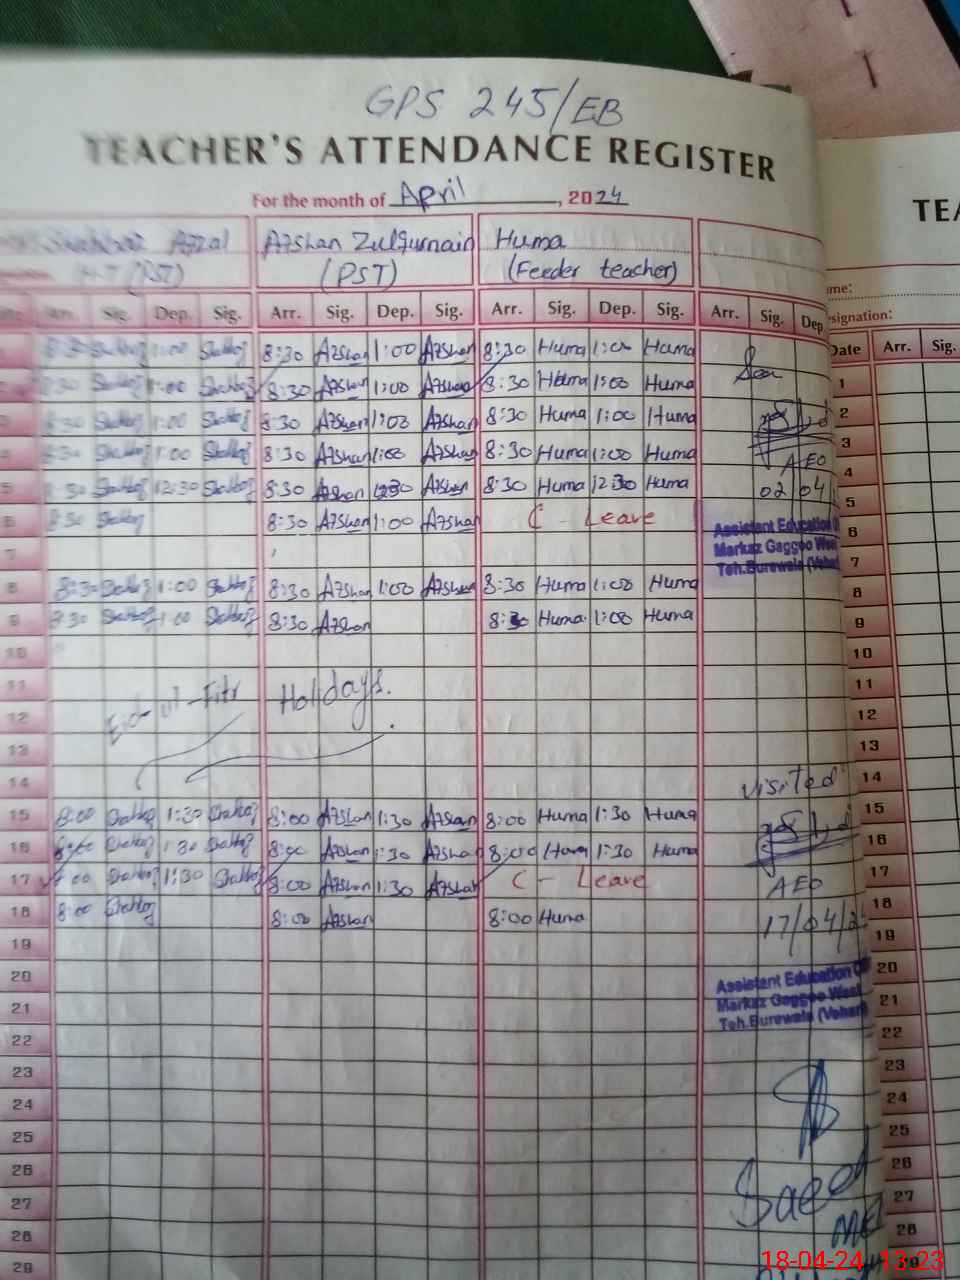 GPS 245/EB
TEACHER'S ATTENDANCE REGISTER
For the month of April, 2024
Shahbaz Afzal Afshan Zulqurnain Huma
H-T (PST) (PST) (Feeder teacher)
Arr. Sig. Dep. Sig. Arr. Sig. Dep. Sig. Arr. Sig. Dep. Sig. Arr. Sig. Dep.
1 8:30 Shahbaz 1:00 Shahbaz 8:30 Afshan 1:00 Afshan 8:30 Huma 1:00 Huma
2 8:30 Shahbaz 1:00 Shahbaz 8:30 Afshan 1:00 Afshan 8:30 Huma 1:00 Huma
3 8:30 Shahbaz 1:00 Shahbaz 8:30 Afshan 1:00 Afshan 8:30 Huma 1:00 Huma
4 8:30 Shahbaz 1:00 Shahbaz 8:30 Afshan 1:00 Afshan 8:30 Huma 1:00 Huma
AEO
5 8:30 Shahbaz 12:30 Shahbaz 8:30 Afshan 12:30 Afshan 8:30 Huma 12:30 Huma
02/04/
6 8:30 Shahbaz 8:30 Afshan 1:00 Afshan C - Leave
Assistant Education
Markaz Gaggoo West
Teh.Burewala (Vehari
7
8 8:30 Shahbaz 1:00 Shahbaz 8:30 Afshan 1:00 Afshan 8:30 Huma 1:00 Huma
9 8:30 Shahbaz 1:00 Shahbaz 8:30 Afshan 8:30 Huma 1:00 Huma
10
11
Eid-ul-Fitr Holidays.
12
13
14
visited
15 8:00 Shahbaz 1:30 Shahbaz 8:00 Afshan 1:30 Afshan 8:00 Huma 1:30 Huma
16 8:00 Shahbaz 1:30 Shahbaz 8:00 Afshan 1:30 Afshan 8:00 Huma 1:30 Huma
17 8:00 Shahbaz 1:30 Shahbaz 8:00 Afshan 1:30 Afshan C - Leave
AEO
18 8:00 Shahbaz 8:00 Afshan 8:00 Huma
17/04/2
19
20
Assistant Education
Markaz Gaggoo West
Teh.Burewala (Vehari
21
22
23
24
25
26
Saeed
27
28
29
TEA
me:
signation:
Date Arr. Sig.
1
2
3
4
5
6
7
8
9
10
11
12
13
14
15
16
17
18
19
20
21
22
23
24
25
26
27
28
18-04-24 13:23